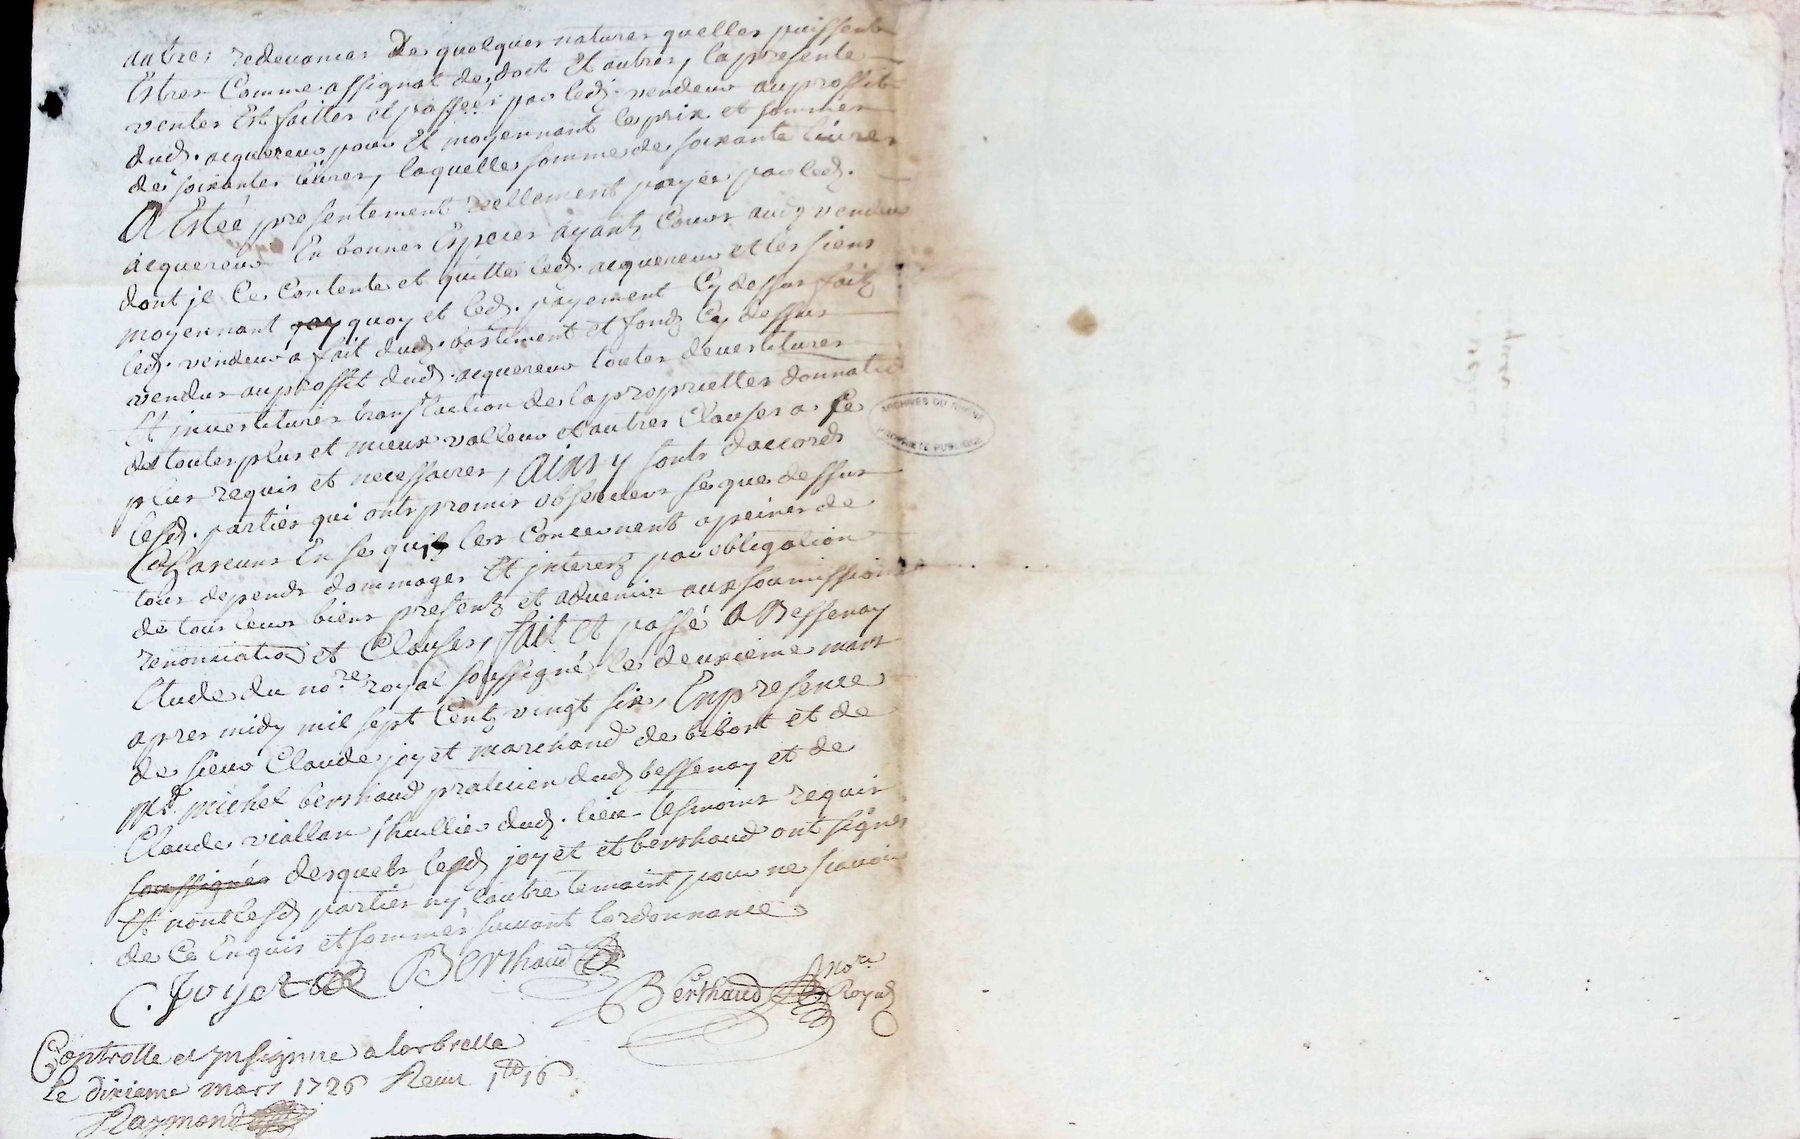 autres redevances de quelques natures quelles puissent
Estres Comme assignat de, doct Et autres, la presente
ventes Est faittes et passées par led. vendeur au proffit
dud. acquereur pour Et moyennant le prix et sommes
de soixantes livres, laquelles somme de soixante livres
A Estéé presentement reellement payée par led.
acquereur En bonnes Especes ayants Cours aud. vendeur
dont je Ce Contente et quitte led. acquereur et les siens
moyennant quoy et led. payement Cy dessus fait
led. vendeur a fait dud. bastiment et fond Cy dessus
vendus au proffit dud. acquereur toutes devestitures
Et jnvestitures translaction de la proprietes donnation
de toutes plus et mieux valleur et autres Clauses a Ce
plus requis et necessaires, Ainsy sont daccord
lesd. parties qui ont promis observer Se que dessus
Chascuns En se quils les Concernent a peines de
tous depends dommages Et jnterests par obligation
de tous leurs biens presents et advenir aux soumissions
renonciation et Clauses, fait Et passé A Bessenay
Etude du no.re royal soussigné le deuxieme mars
apres midy mil sept Cents vingt six, En presence
de sieur Claude joyet marchand de bibost et de
Mt. michel berthaud praticien dud bessenay et de
Claude viallan huillier dud. lieu tesmoins requis
soussignés desquels lesd joyet et berthaud ont signés
Et non lesd parties ny lautre temoint pour ne scavoir
de Ce Enquis et sommés suivant lordonnance
C. Joyet Berthaud
Berthaud no.re Royal
Controlle et Insignue a larbresle
Le dixieme mars 1726 Receu 1tt 16
Raymond
ARCHIVES DU RHONE
PROPRIETE PUBLIQUE